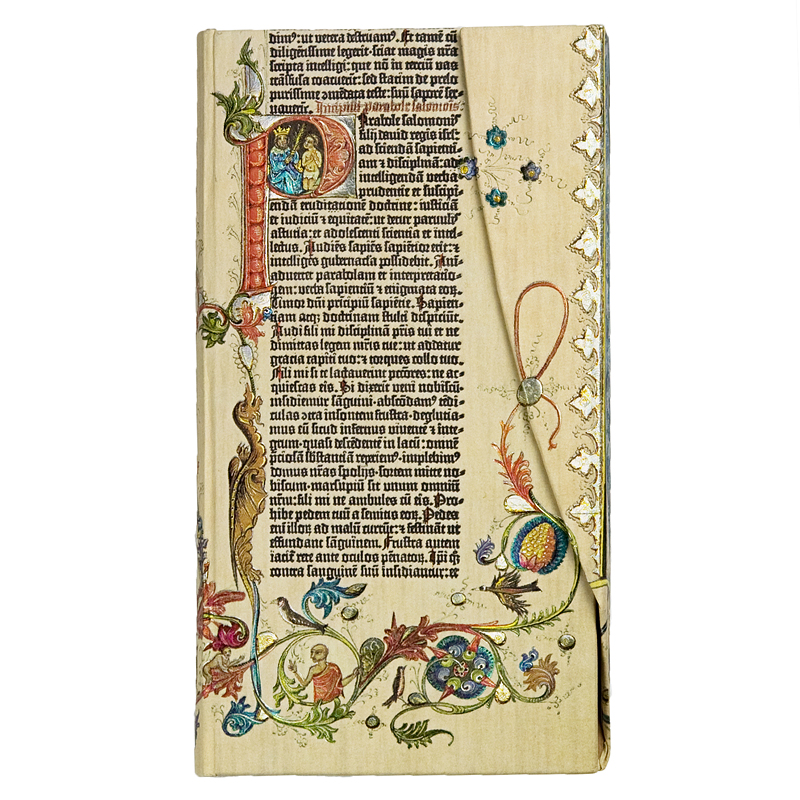 dim⁹: ut vetera destruam⁹. Et tamē cū
diligētissime legerit·sciat magis nr̄a
scripta intelligi: que nō in terciū vas
trāsfusa coacuerīt: sed statim de prelo
purissime ɔmēdata teste: suū saporē ser-
uauerīt. Incipiūt parabole salomonis.
Parabole salomonis
filij david regis isrl':
ad sciendā sapienti-
am ⁊ disciplinā: ad
intelligendā verba
prudentie et suscipi-
endā eruditionē doctrine: iusticiā
et iudiciū ⁊ equitatē: ut detur parvulis
astutia: et adolescenti scientia et intel-
lectus. Audiēs sapiēs sapientior erit: ⁊
intelligēs gubernacla possidebit. Ani-
advertet parabolam et interpretatio-
nem: verba sapientiū ⁊ enigmata eoꝝ.
Timor dn̄i pricipiū sapiētie. Sapien-
tiam atqꝫ doctrinam stulti despiciūt.
Audi fili mi disciplinā pr̄is tui et ne
dimittas legem mr̄is tue: ut addatur
gracia capiti tuo: ⁊ torques collo tuo.
Fili mi si te lactauerint pctōres: ne ac-
quiescas eis. Si dixerīt veni nobiscū·
insidiemur sāguini·abscōdam⁹ tēdi-
culas ɔtra insontem frustra·deglutia-
mus eū sicud infernus viventē ⁊ inte-
grum·quasi descēdentē in lacū: omnē
p̄ciosā sb̄stantiā reperiem⁹·implebim⁹
domus nr̄as spolijs·sortem mitte no-
biscum·marsupiū sit unum omniū
nr̄m: fili mi ne ambules cū eis. Pro-
hibe pedem tuū a semitis eoꝝ. Pedes
eni illoꝝ ad malū currūt: ⁊ festināt ut
effundant sāguinem. Frustra autem
iacit̄ rete ante oculos pēnatoꝝ. Ip̄i qꝫ
contra sanguinē suū insidiantur: et